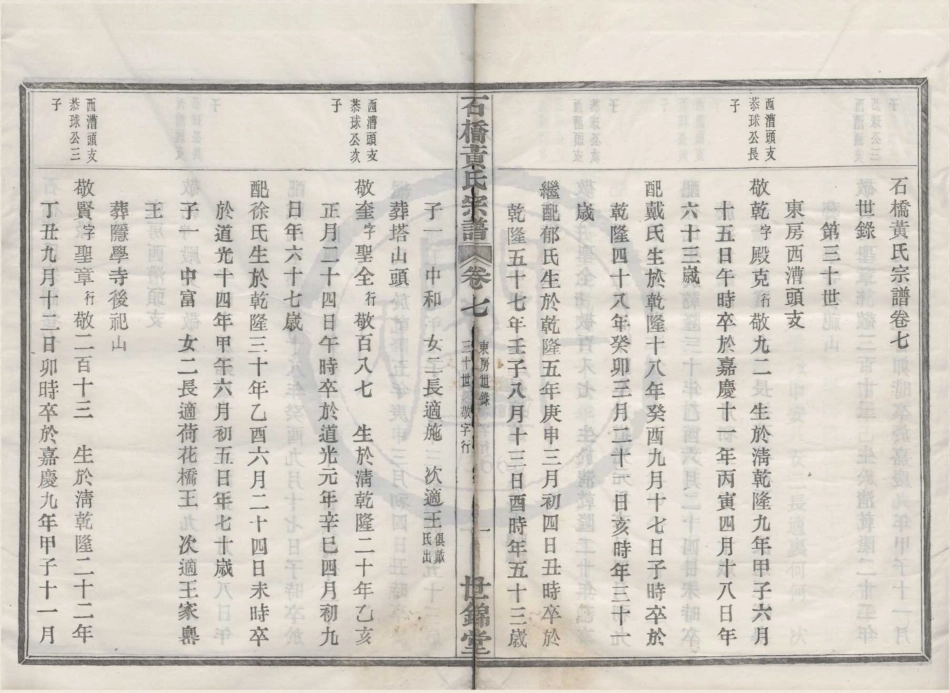 石橋黃氏宗譜卷七
世錄
第三十世
東房西漕頭支
西漕頭支
恭球公長
子
敬乾字殿克行敬九二 生於清乾隆九年甲子六月
十五日午時卒於嘉慶十一年丙寅四月十八日年
六十三歲
配戴氏生於乾隆十八年癸酉九月十七日子時卒於
乾隆四十八年癸卯三月二十一日亥時年三十一
歲
繼配郁氏生於乾隆五年庚申三月初四日丑時卒於
乾隆五十七年壬子八月十三日酉時年五十三歲
石橋黃氏宗譜
卷七
東房世錄
三十世 敬字行
一
世錦堂
子一 中和 女二長適施 次適王俱戴氏出
葬塔山頭
西漕頭支
恭球公次
子
敬奎字聖全行敬百八七 生於清乾隆二十年乙亥
正月二十四日午時卒於道光元年辛巳四月初九
日年六十七歲
配徐氏生於乾隆三十年乙酉六月二十四日未時卒
於道光十四年甲午六月初五日年七十歲
子一 中富 女二長適荷花橋王 次適王家㯠
王
葬隱學寺後祀山
西漕頭支
恭球公三
子
敬賢字聖章行敬二百十三 生於清乾隆二十二年
丁丑九月十二日卯時卒於嘉慶九年甲子十一月